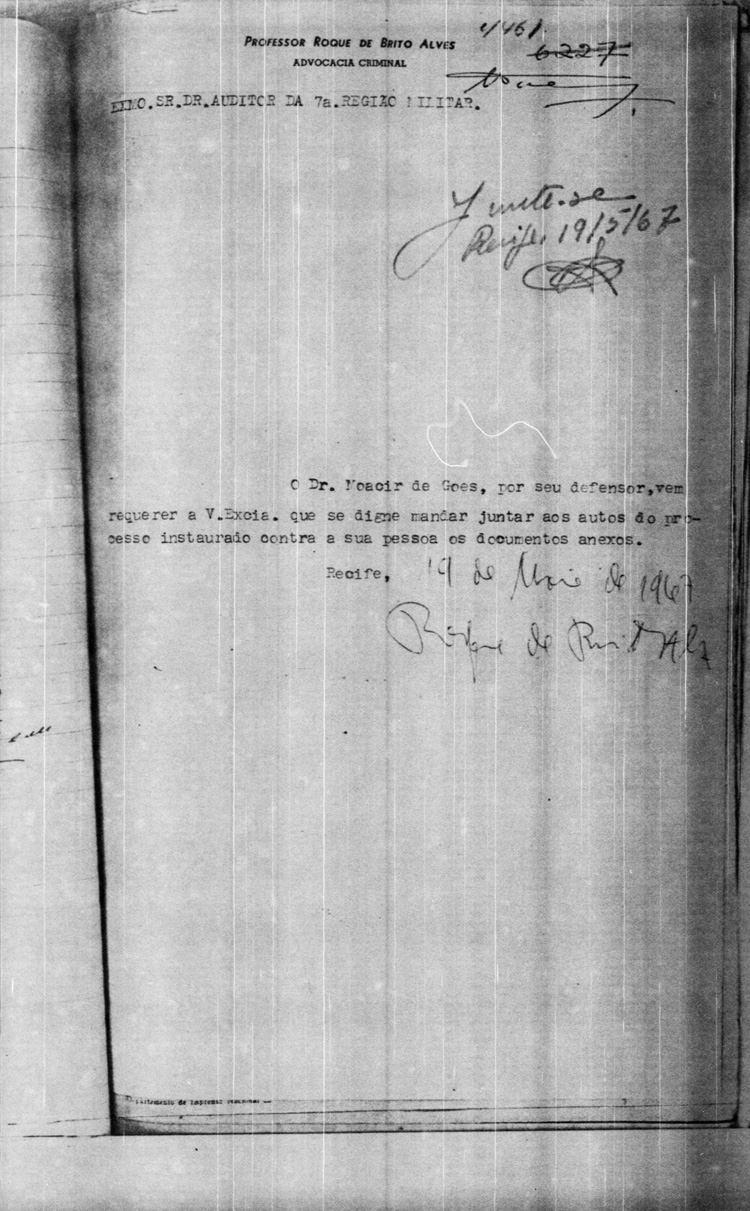 PROFESSOR ROQUE DE BRITO ALVES
ADVOCACIA CRIMINAL
4461
6227
EXMO.SR.DR.AUDITOR DA 7a.REGIÃO MILITAR.
Junte-se
Recife, 19/5/67
O Dr. Moacir de Goes, por seu defensor,vem
requerer a V.Excia. que se digne mandar juntar aos autos do pro-
cesso instaurado contra a sua pessoa os documentos anexos.
Recife, 19 de Maio de 1967
Roque de Brito Alves